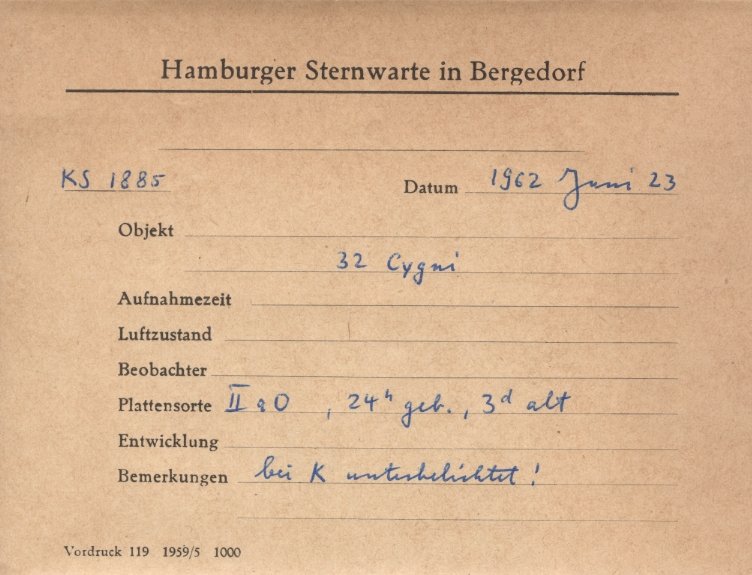 Hamburger Sternwarte in Bergedorf
KS 1885 Datum 1962 Juni 23
Objekt
32 Cygni
Aufnahmezeit
Luftzustand
Beobachter
Plattensorte II a O , 24ʰ geb., 3ᵈ alt
Entwicklung
Bemerkungen bei K unterbelichtet!
Vordruck 119 1959/5 1000